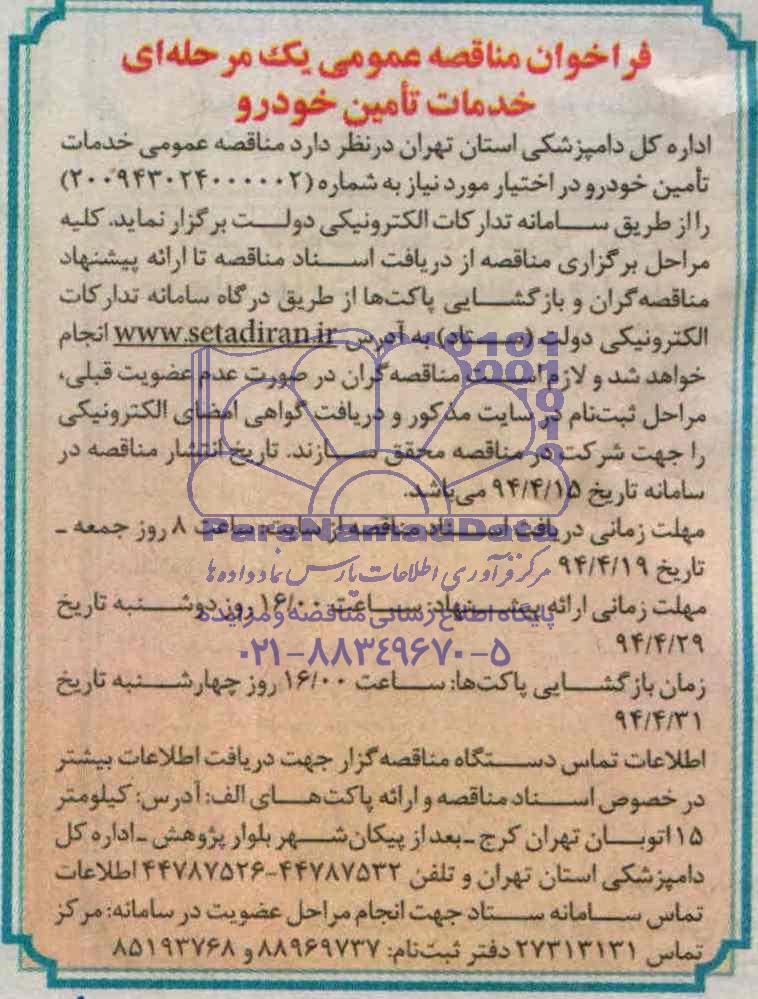 فراخوان مناقصه عمومی یک مرحله‌ای
خدمات تأمین خودرو
اداره کل دامپزشکی استان تهران درنظر دارد مناقصه عمومی خدمات
تأمین خودرو در اختیار مورد نیاز به شماره (۲۰۰۹۴۳۰۲۴۰۰۰۰۰۲)
را از طریق سامانه تدارکات الکترونیکی دولت برگزار نماید. کلیه
مراحل برگزاری مناقصه از دریافت اسناد مناقصه تا ارائه پیشنهاد
مناقصه‌گران و بازگشایی پاکت‌ها از طریق درگاه سامانه تدارکات
الکترونیکی دولت (ستاد) به آدرس www.setadiran.ir انجام
خواهد شد و لازم است مناقصه‌گران در صورت عدم عضویت قبلی،
مراحل ثبت‌نام در سایت مذکور و دریافت گواهی امضای الکترونیکی
را جهت شرکت در مناقصه محقق سازند. تاریخ انتشار مناقصه در
سامانه تاریخ ۹۴/۴/۱۵ می‌باشد.
مهلت زمانی دریافت اسناد مناقصه از سایت: ساعت ۸ روز جمعه ـ
تاریخ ۹۴/۴/۱۹
ParsNamadData
مرکز فرآوری اطلاعات پارس نماد داده‌ها
مهلت زمانی ارائه پیشنهاد: ساعت ۱۶/۰۰ روز دوشنبه تاریخ
۹۴/۴/۲۹
پایگاه اطلاع رسانی مناقصه و مزایده
۰۲۱-۸۸۳۴۹۶۷۰-۵
زمان بازگشایی پاکت‌ها: ساعت ۱۶/۰۰ روز چهارشنبه تاریخ
۹۴/۴/۳۱
اطلاعات تماس دستگاه مناقصه‌گزار جهت دریافت اطلاعات بیشتر
در خصوص اسناد مناقصه و ارائه پاکت‌های الف: آدرس: کیلومتر
۱۵ اتوبان تهران کرج ـ بعد از پیکان‌شهر بلوار پژوهش ـ اداره کل
دامپزشکی استان تهران و تلفن ۴۴۷۸۷۵۳۲-۴۴۷۸۷۵۲۶ اطلاعات
تماس سامانه ستاد جهت انجام مراحل عضویت در سامانه: مرکز
تماس ۲۷۳۱۳۱۳۱ دفتر ثبت‌نام: ۸۸۹۶۹۷۳۷ و ۸۵۱۹۳۷۶۸